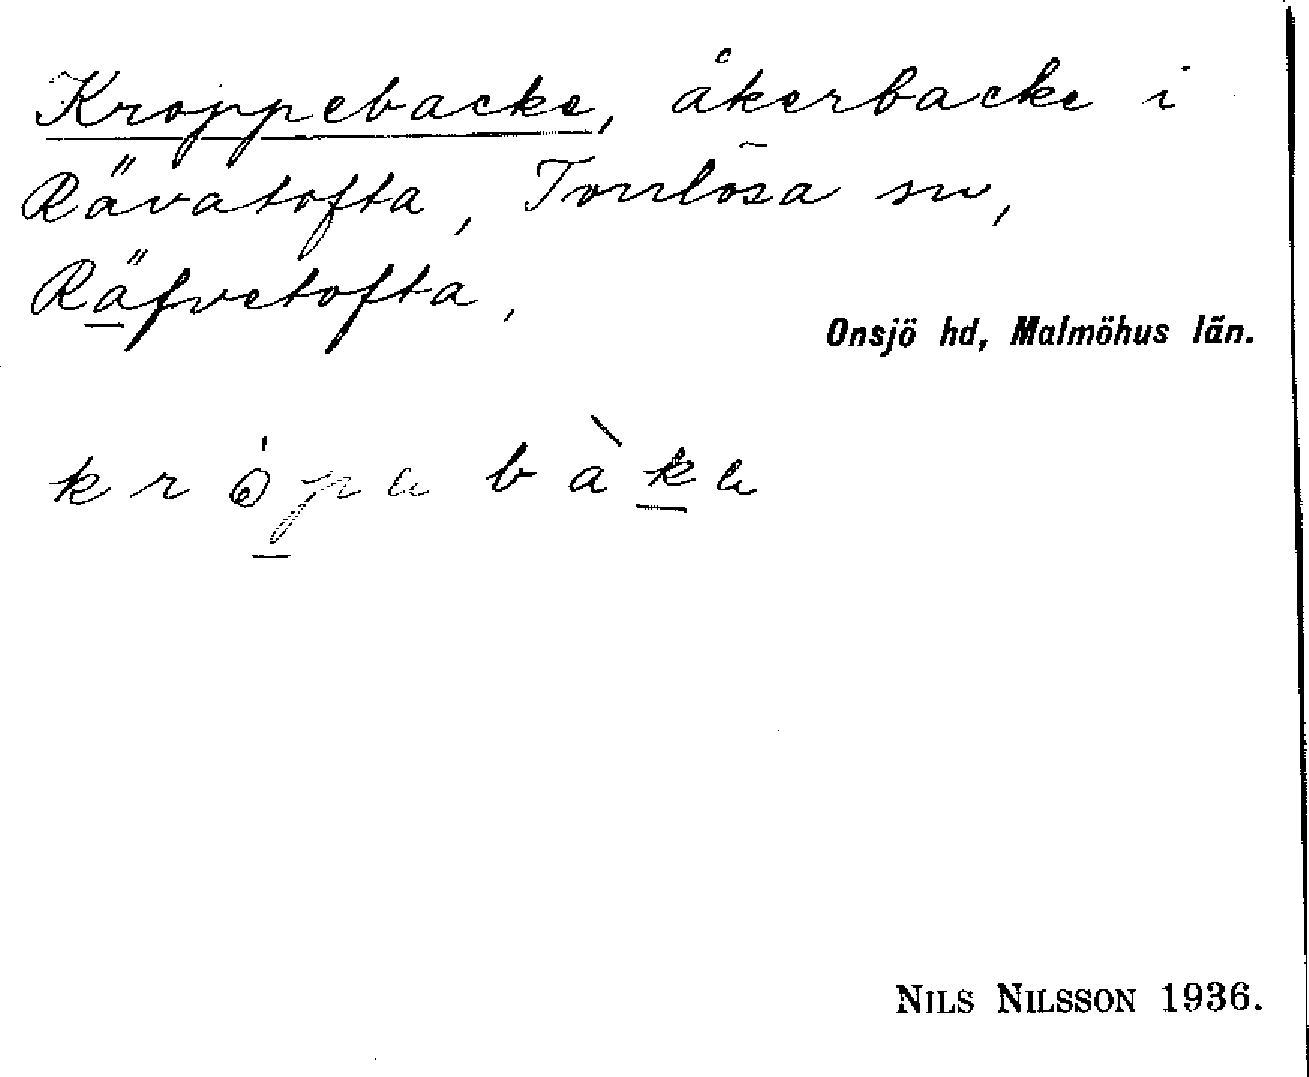 Kroppebacke, åkerbacke i
Rävatofta, Torrlösa sn,
Räfvetofta,
Onsjö hd, Malmöhus län.
NILS NILSSON 1936.